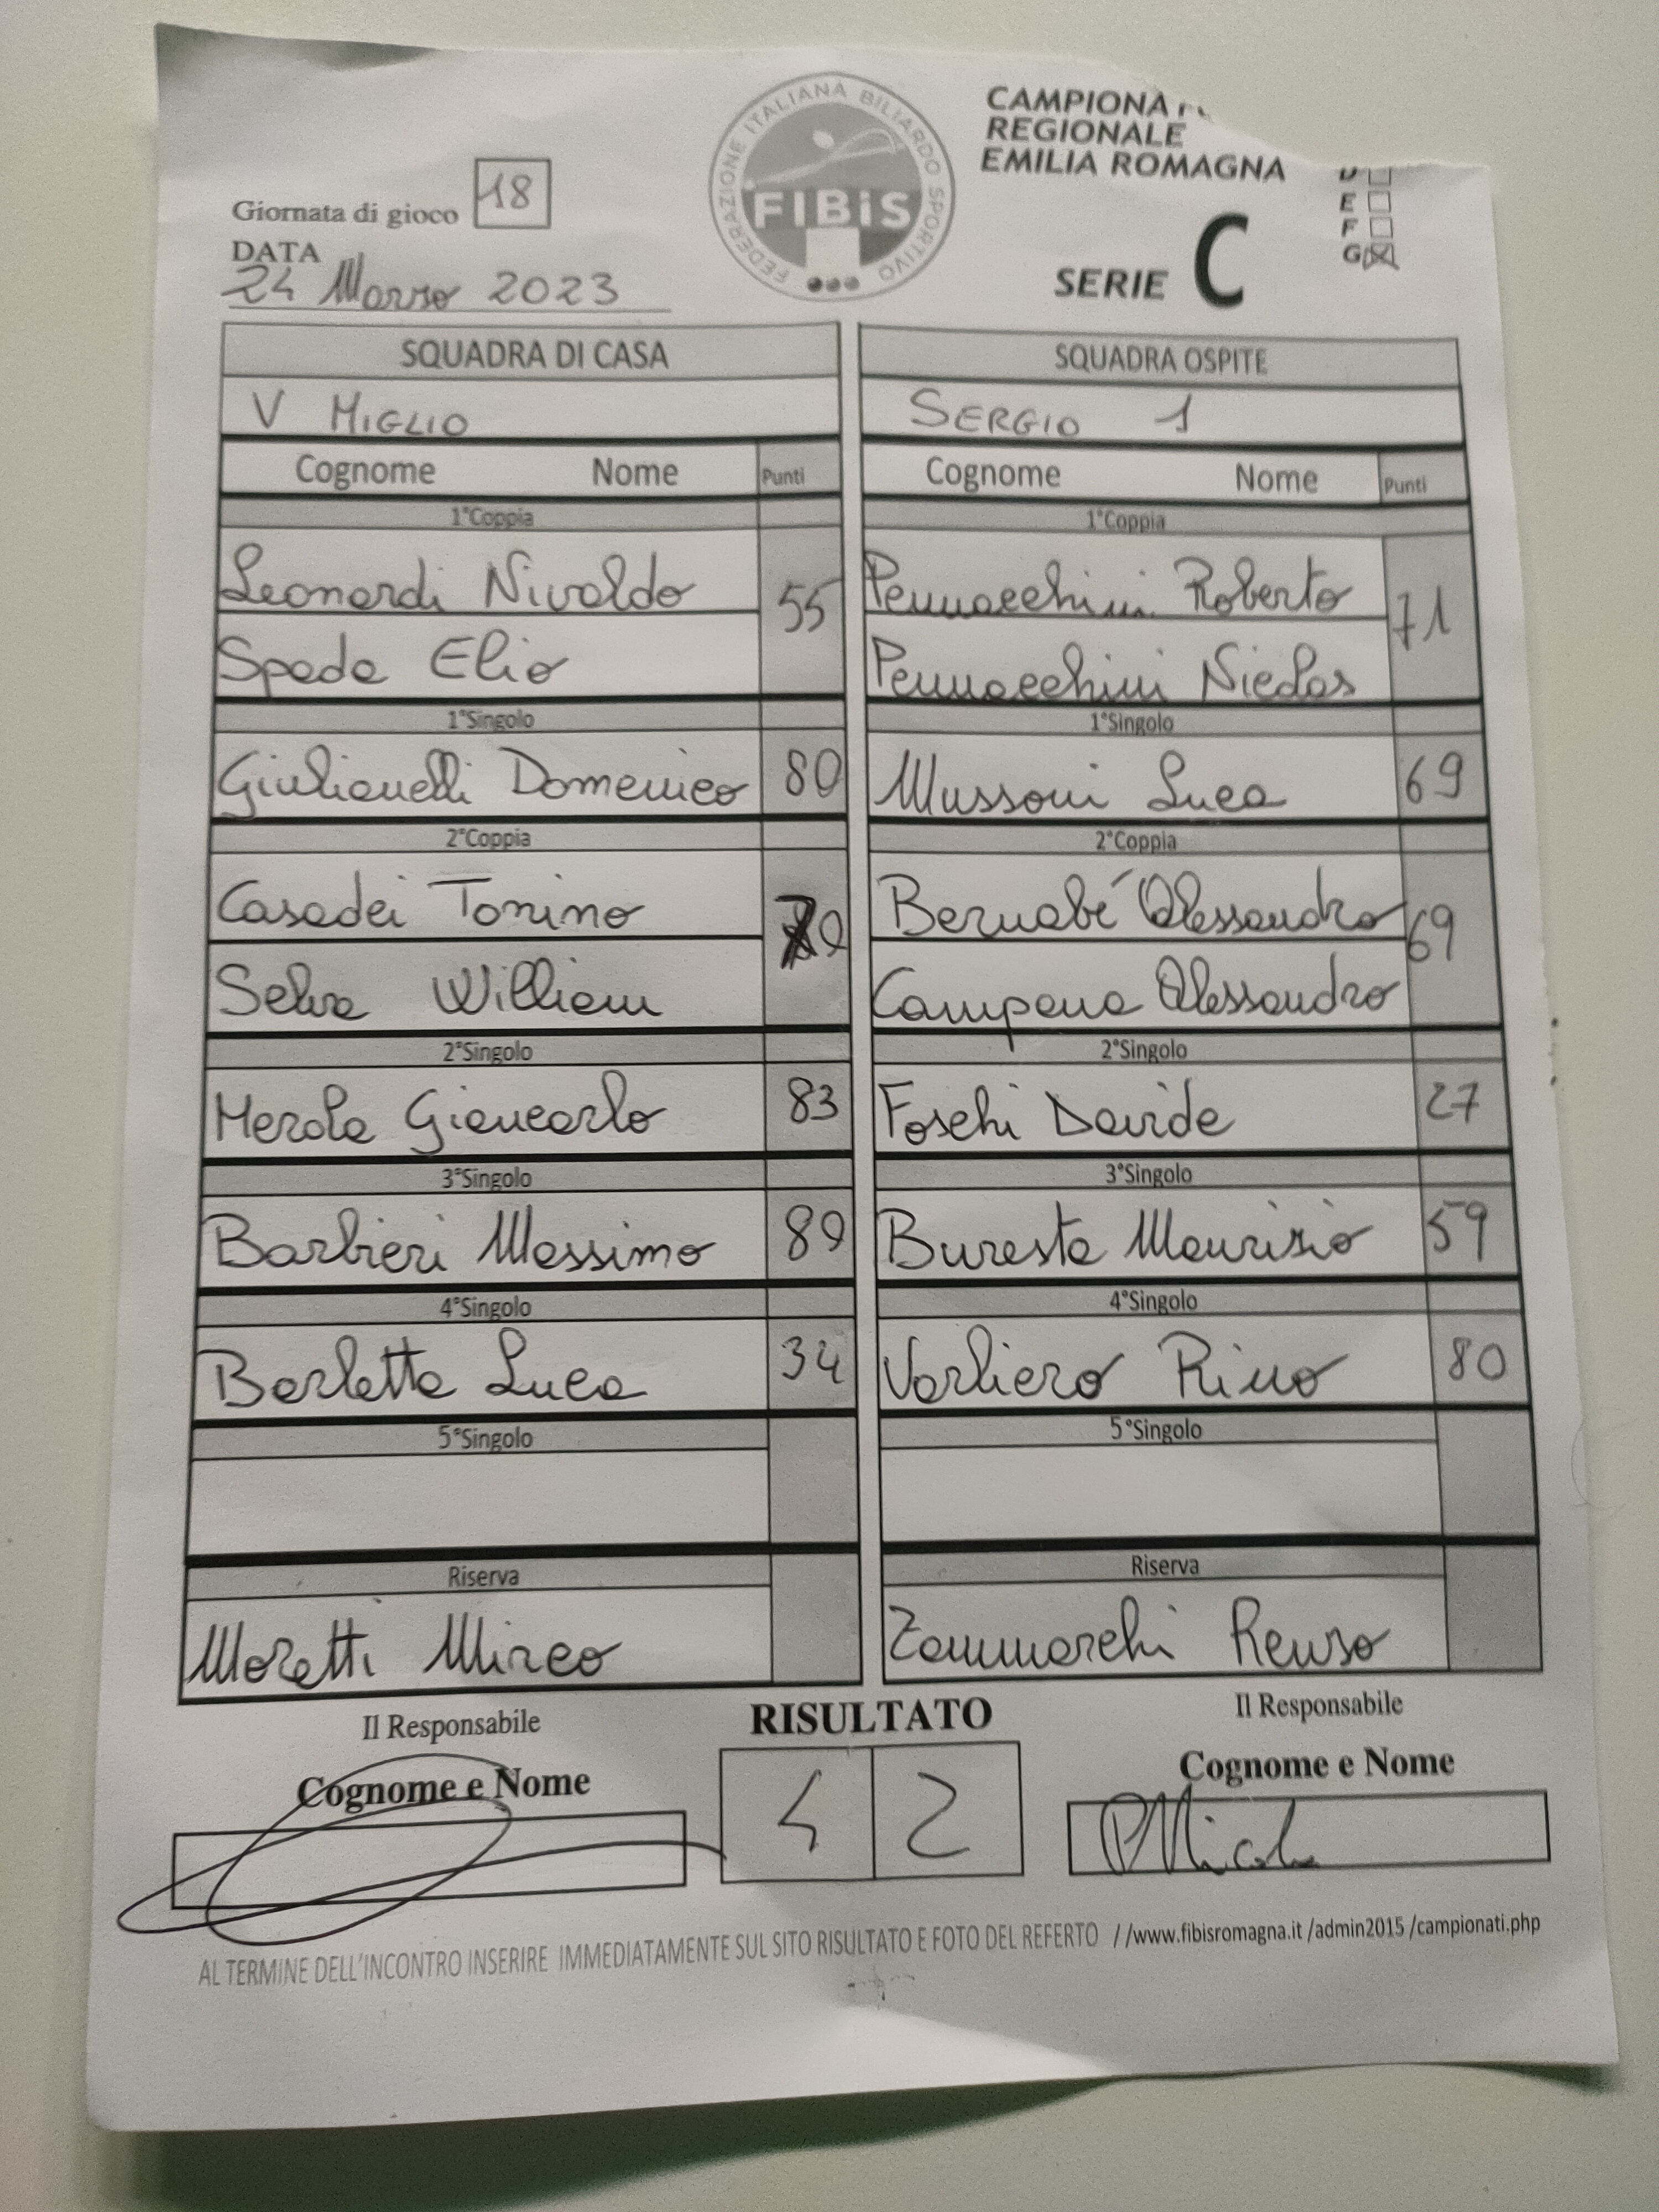 FEDERAZIONE ITALIANA BILIARDO SPORTIVO
FIBiS
CAMPIONA
REGIONALE
EMILIA ROMAGNA
SERIE C
E
F
G
Giornata di gioco 18
DATA
24 Marzo 2023
SQUADRA DI CASA
V MIGLIO
Cognome Nome Punti
1°Coppia
Leonardi Nivaldo
55
Spada Elio
1°Singolo
Giulianelli Domenico 80
2°Coppia
Casadei Tonino
Selva William
2°Singolo
Merola Giancarlo 83
3°Singolo
Barbieri Massimo 89
4°Singolo
Barletta Luca 34
5°Singolo
Riserva
Moretti Mirco
SQUADRA OSPITE
SERGIO 1
Cognome Nome Punti
1°Coppia
Pennacchini Roberto
71
Pennacchini Nicolas
1°Singolo
Mussoni Luca 69
2°Coppia
Bernabé Alessandro
69
Campana Alessandro
2°Singolo
Foschi Davide 27
3°Singolo
Buresta Maurizio 59
4°Singolo
Varliero Rino 80
5°Singolo
Riserva
Zammarchi Renzo
Il Responsabile
Cognome e Nome
RISULTATO
4 2
Il Responsabile
Cognome e Nome
AL TERMINE DELL'INCONTRO INSERIRE IMMEDIATAMENTE SUL SITO RISULTATO E FOTO DEL REFERTO //www.fibisromagna.it /admin2015 /campionati.php